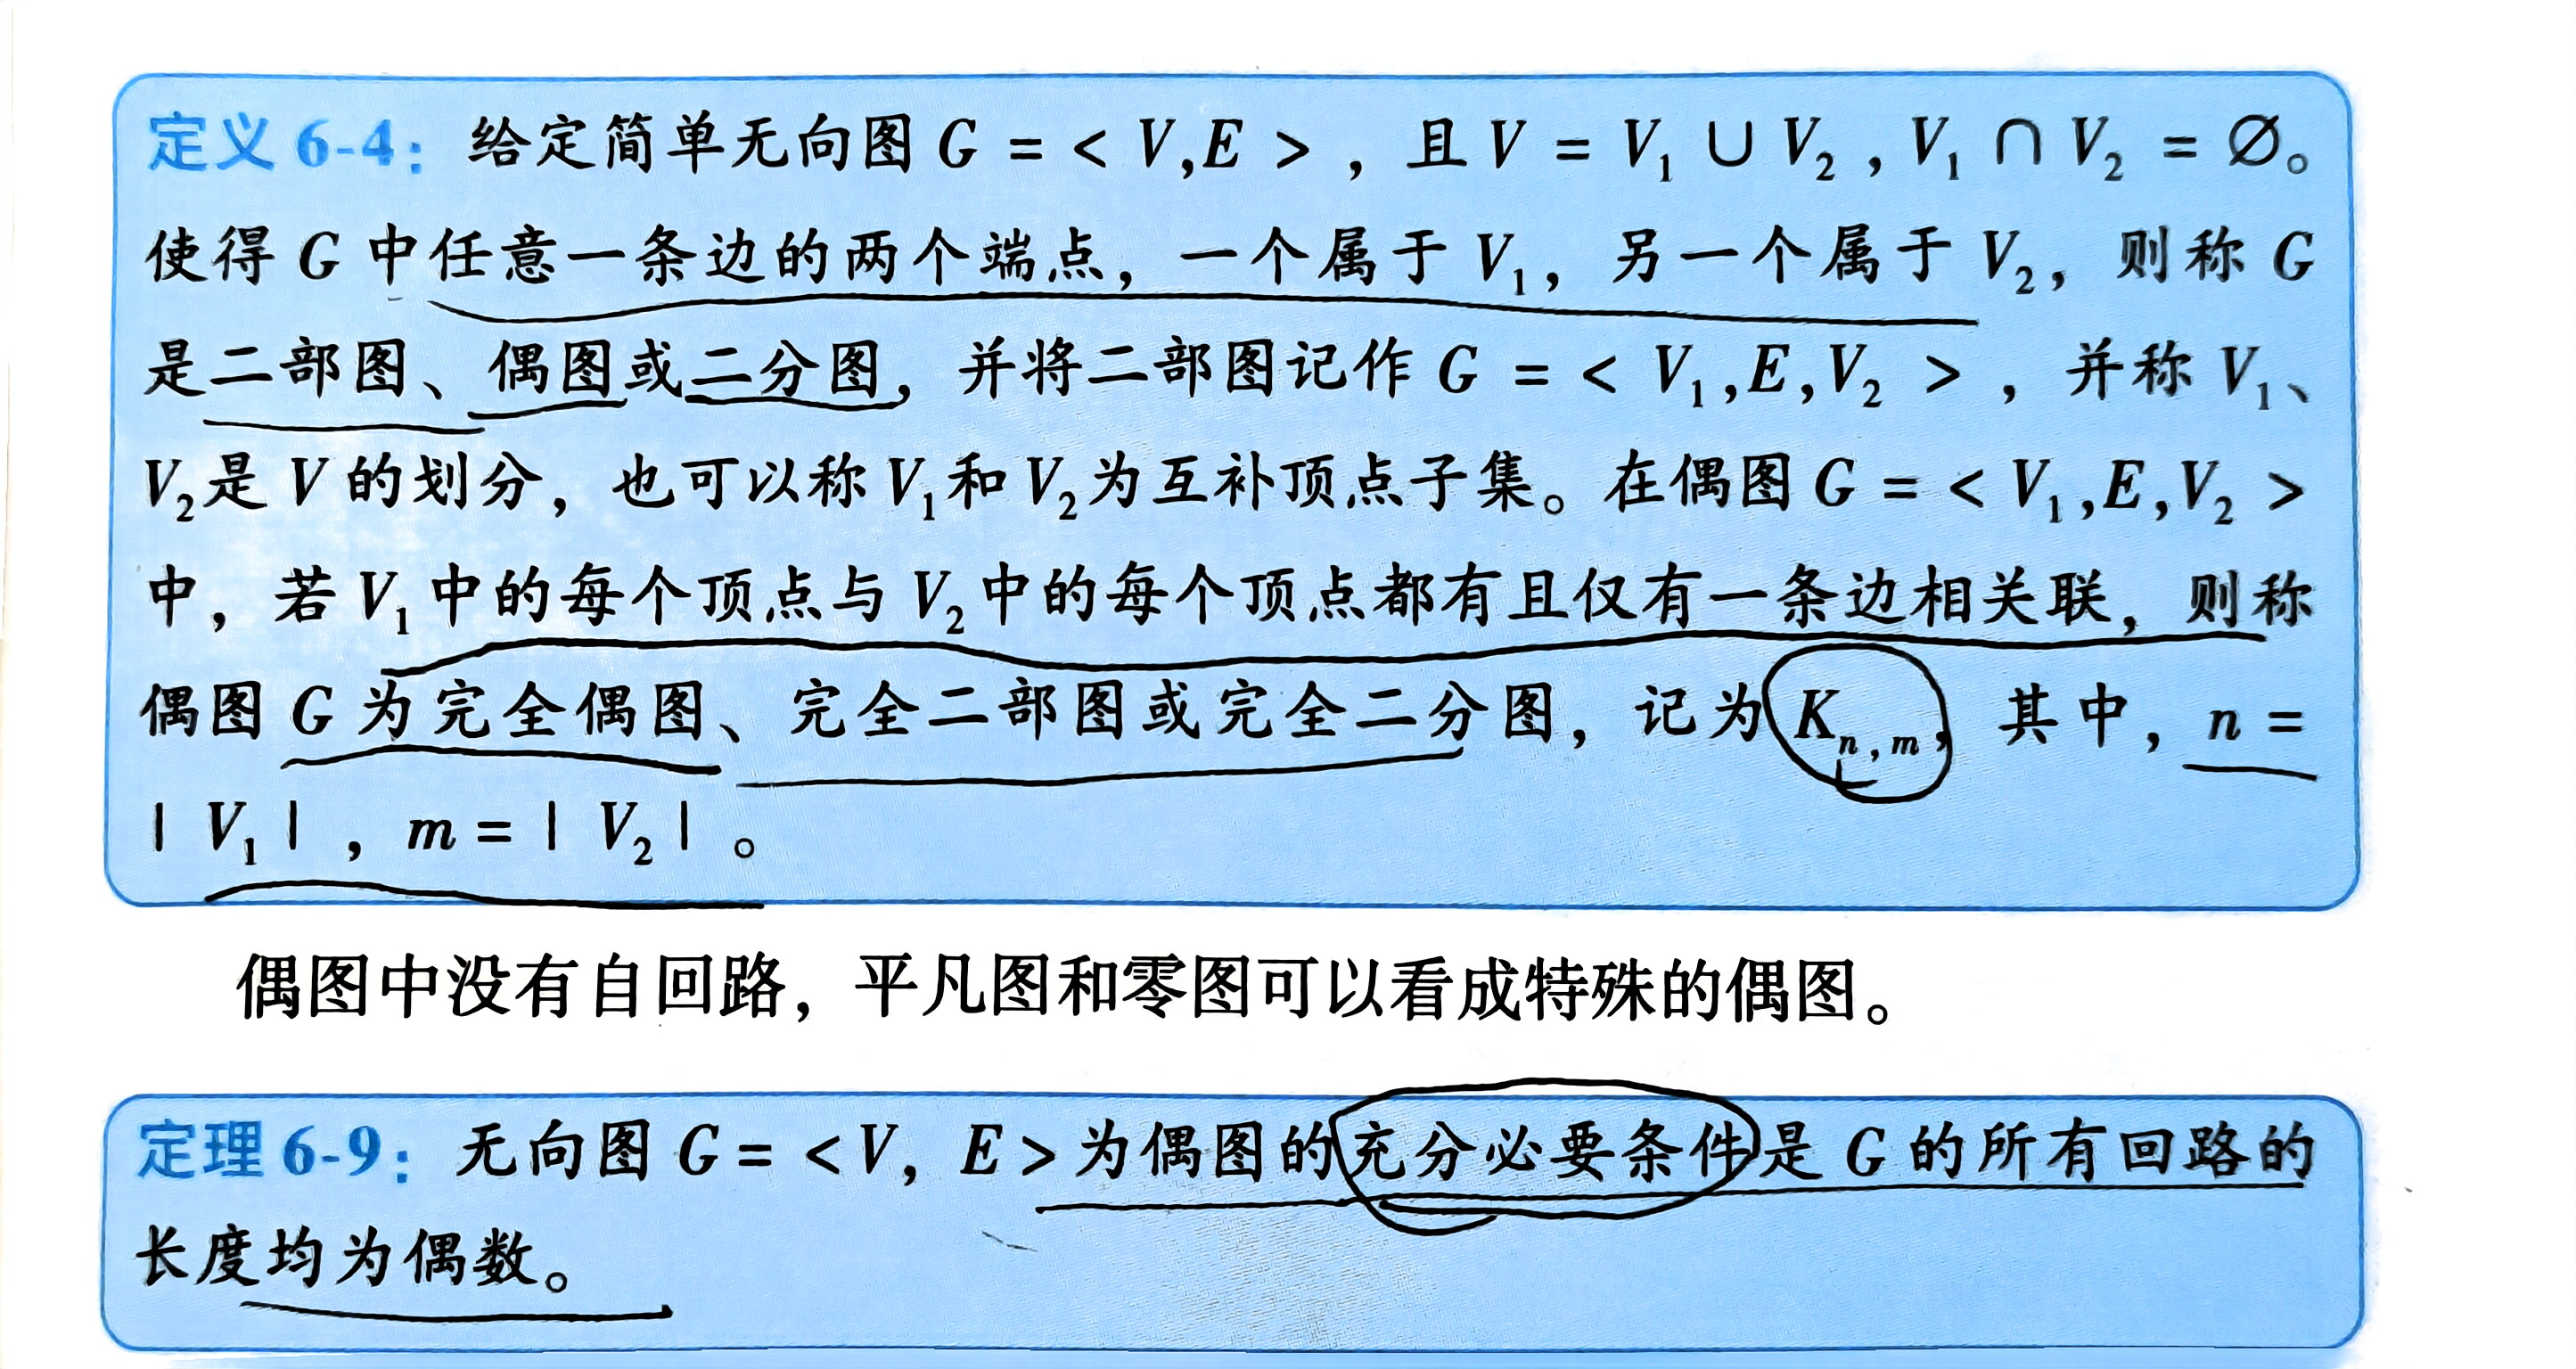 定义 6-4：给定简单无向图 G = < V,E > ，且 V = V₁ ∪ V₂ ,V₁ ∩ V₂ = ∅。
使得 G 中任意一条边的两个端点，一个属于 V₁，另一个属于 V₂，则称 G
是二部图、偶图或二分图，并将二部图记作 G = < V₁,E,V₂ > ，并称 V₁、
V₂是 V 的划分，也可以称 V₁和 V₂为互补顶点子集。在偶图 G = < V₁,E,V₂ >
中，若 V₁ 中的每个顶点与 V₂ 中的每个顶点都有且仅有一条边相关联，则称
偶图 G 为完全偶图、完全二部图或完全二分图，记为 Kₙ,ₘ，其中，n =
| V₁ | ，m = | V₂ | 。
偶图中没有自回路，平凡图和零图可以看成特殊的偶图。
定理 6-9：无向图 G = <V，E>为偶图的充分必要条件是 G 的所有回路的
长度均为偶数。